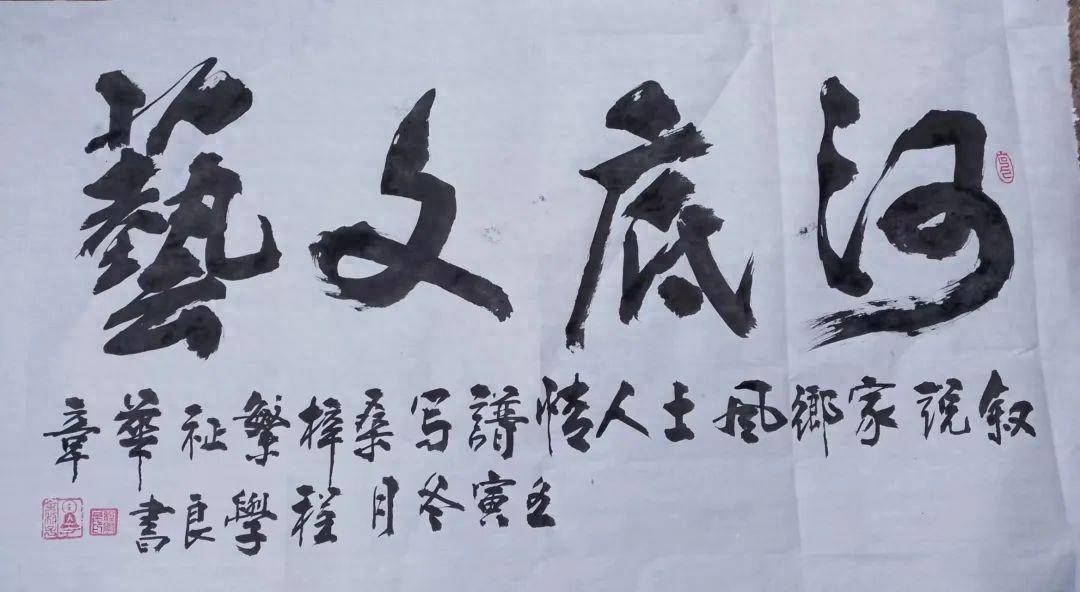 河底文藝
叙説家鄉風土人情譜写桑梓繁祉華章
壬寅冬月程學良書